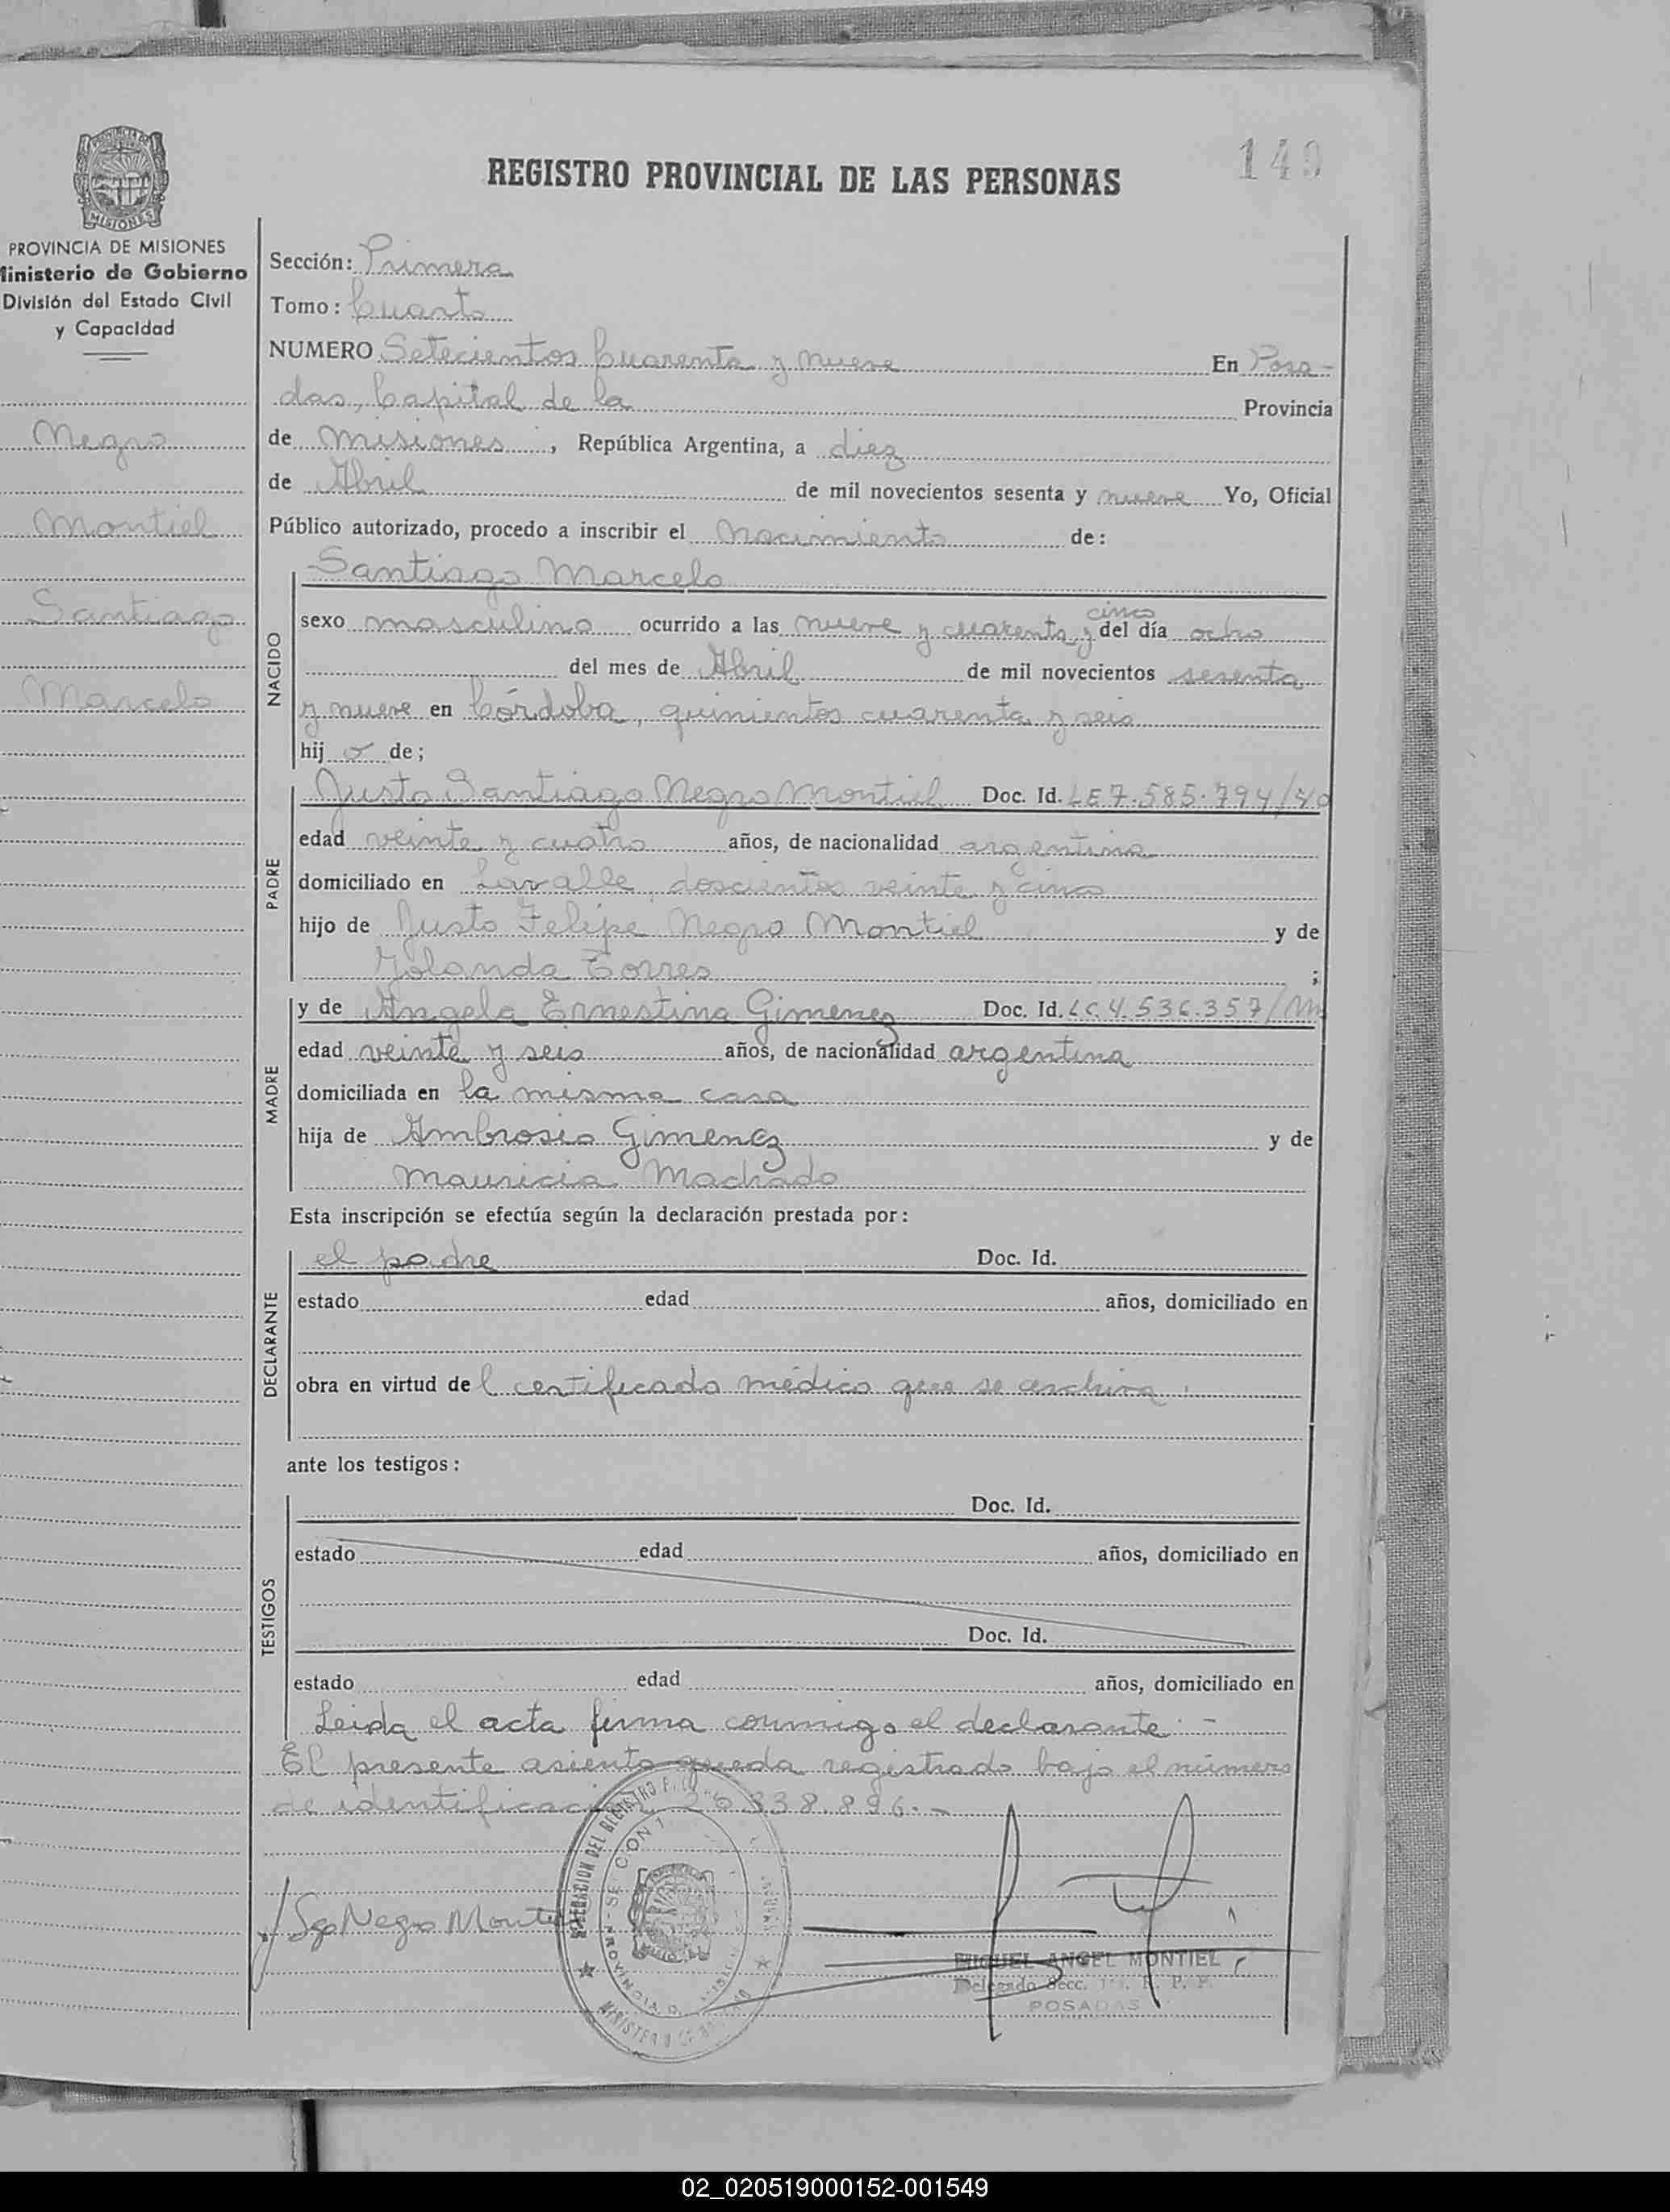 149
REGISTRO PROVINCIAL DE LAS PERSONAS
MISIONES
PROVINCIA DE MISIONES
Ministerio de Gobierno
División del Estado Civil
y Capacidad
Negro
Montiel
Santiago
Marcelo
Sección: Primera
Tomo: Cuarto
NUMERO Setecientos Cuarenta y nueve En Posa-
das, Capital de la Provincia
de Misiones, República Argentina, a diez
de Abril de mil novecientos sesenta y nueve Yo, Oficial
Público autorizado, procedo a inscribir el Nacimiento de:
NACIDO
Santiago Marcelo
sexo masculino ocurrido a las nueve y cuarenta y cinco del día ocho
del mes de Abril de mil novecientos sesenta
y nueve en Córdoba, quinientos cuarenta y seis
hijo de;
PADRE
Justo Santiago Negro Montiel Doc. Id. LE 7.585.794/40
edad veinte y cuatro años, de nacionalidad argentina
domiciliado en Lavalle, doscientos veinte y cinco
hijo de Justo Felipe Negro Montiel y de
Yolanda Torres ;
MADRE
y de Angela Ernestina Gimenez Doc. Id. LC.4.536.357/M
edad veinte y seis años, de nacionalidad argentina
domiciliada en la misma casa
hija de Ambrosio Gimenez y de
Mauricia Machado
Esta inscripción se efectúa según la declaración prestada por:
DECLARANTE
el padre Doc. Id.
estado edad años, domiciliado en
obra en virtud del certificado médico que se archiva
ante los testigos:
TESTIGOS
Doc. Id.
estado edad años, domiciliado en
Doc. Id.
estado edad años, domiciliado en
Leida el acta firma conmigo el declarante.-
El presente asiento queda registrado bajo el número
de identificación 20.338.896.-
Sgo Negro Montiel
MIGUEL ANGEL MONTIEL
Delegado Secc. 1ra. R. P. P.
POSADAS
02_020519000152-001549